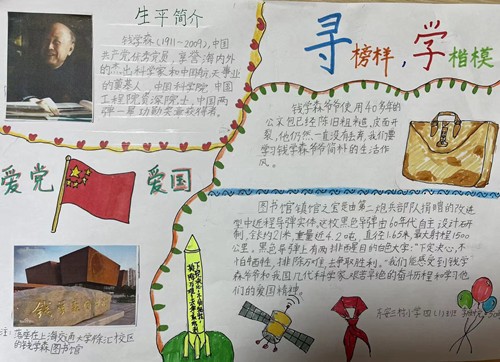 生平简介
钱学森(1911-2009),中国
共产党优秀党员,享誉海内外
的杰出科学家和中国航天事业
的奠基人,中国科学院、中国
工程院资深院士,中国两
弹一星功勋奖章获得者。
寻榜样,学楷模
钱学森爷爷使用40多年的
公文包已经陈旧粗糙,皮面开
裂,他仍然一直没有丢弃,我们要
学习钱学森爷爷简朴的生活作
风。
爱党
爱国
图书馆镇馆之宝是由第二炮兵部队捐赠的改造
型中近程导弹实体,这枚黑色导弹由60年代自主设计研
制,全长约21米,重量近4.20吨,直径1.65米,最大射程1500
公里,黑色导弹上有两排醒目的白色大字:"下定决心,不
怕牺牲,排除万难,去争取胜利。"我们能感受到钱学
森爷爷和我国几代科学家艰苦卓绝的奋斗历程和学习他
们的爱国精神。
下定决心,不怕牺牲
排除万难,去争取胜利
钱学森图书馆
注:落座在上海交通大学徐汇校区
的钱学森图书馆